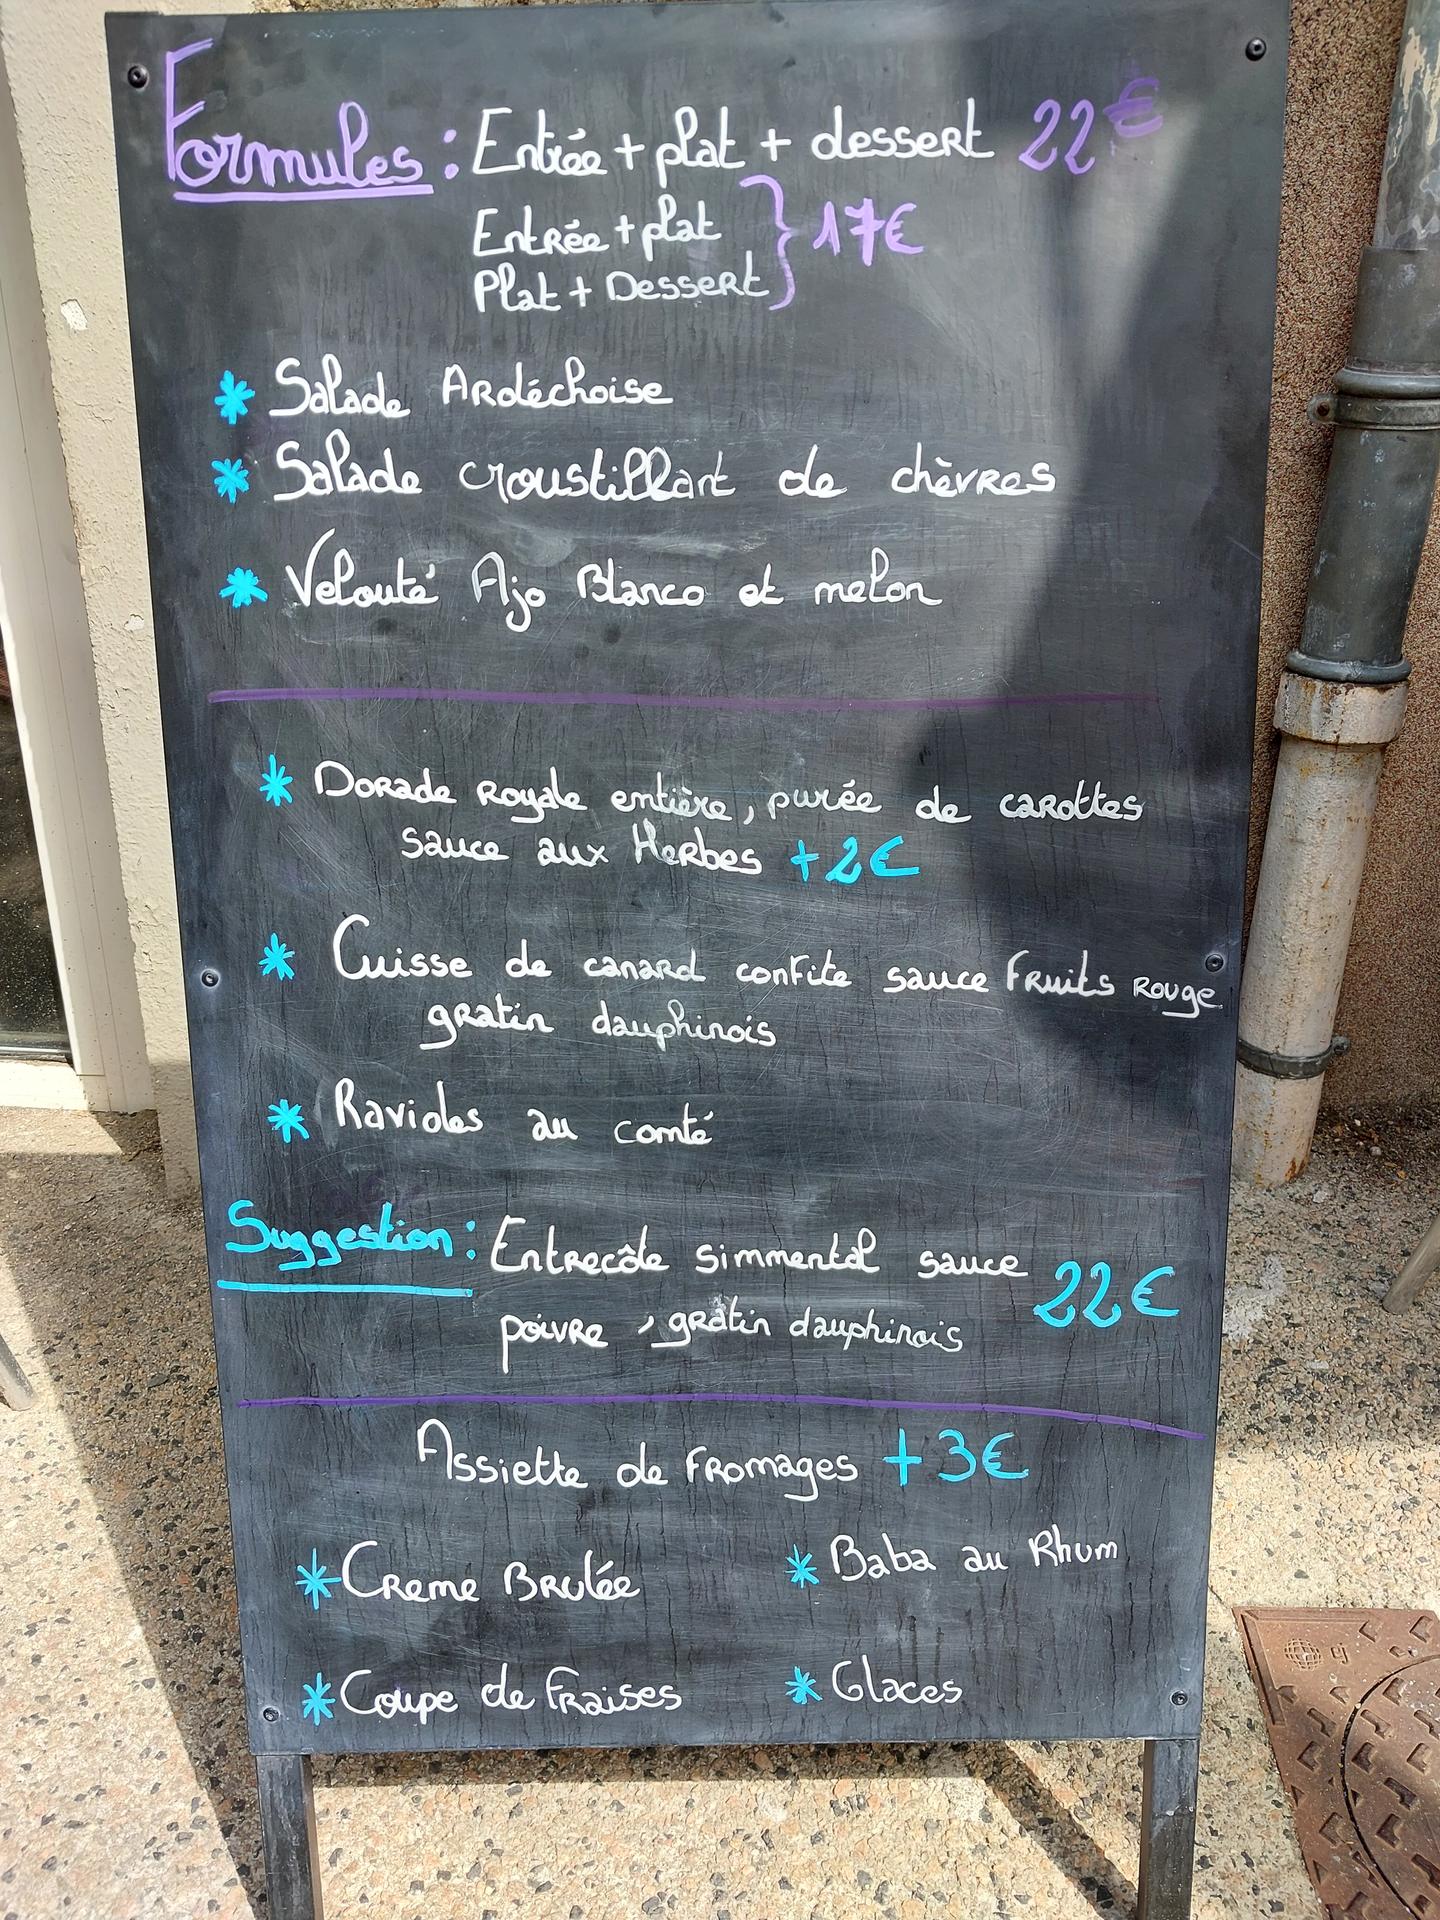 Formules : Entrée + plat + dessert 22€
Entrée + plat
Plat + Dessert } 17€
* Salade Ardéchoise
* Salade croustillant de chèvres
* Velouté Ajo Blanco et melon
* Dorade royale entière, purée de carottes
sauce aux Herbes +2€
* Cuisse de canard confite sauce Fruits rouge
gratin dauphinois
* Ravioles au comté
Suggestion : Entrecôte simmental sauce 22€
poivre, gratin dauphinois
Assiette de fromages +3€
* Creme Brulée
* Baba au Rhum
* Coupe de Fraises
* Glaces
ej